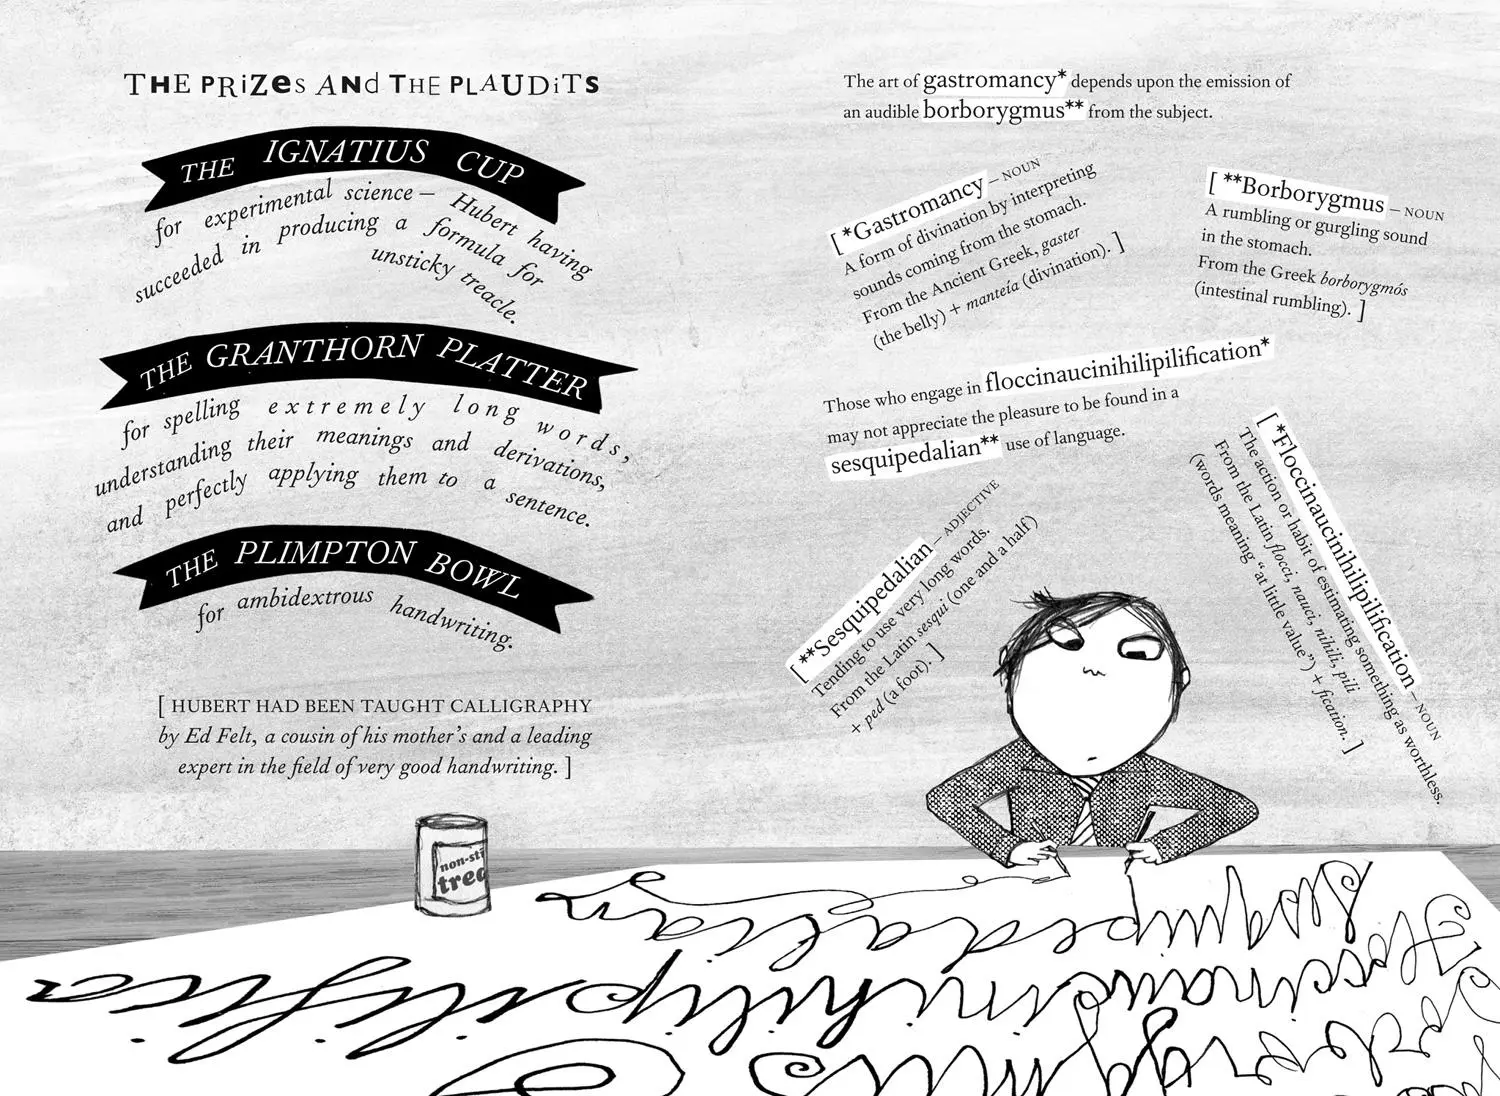 THE PRiZes ANd THE PLAUDiTS
THE IGNATIUS CUP
for experimental science – Hubert having
succeeded in producing a formula for
unsticky treacle.
THE GRANTHORN PLATTER
for spelling extremely long words,
understanding their meanings and derivations,
and perfectly applying them to a sentence.
THE PLIMPTON BOWL
for ambidextrous handwriting.
[ HUBERT HAD BEEN TAUGHT CALLIGRAPHY
by Ed Felt, a cousin of his mother’s and a leading
expert in the field of very good handwriting. ]
non-sti
trea
The art of gastromancy* depends upon the emission of
an audible borborygmus** from the subject.
[ *Gastromancy – NOUN
A form of divination by interpreting
sounds coming from the stomach.
From the Ancient Greek, gaster
(the belly) + manteía (divination). ]
[ **Borborygmus – NOUN
A rumbling or gurgling sound
in the stomach.
From the Greek borborygmós
(intestinal rumbling). ]
Those who engage in floccinaucinihilipilification*
may not appreciate the pleasure to be found in a
sesquipedalian** use of language.
[ **Sesquipedalian – ADJECTIVE
Tending to use very long words.
From the Latin sesqui (one and a half)
+ ped (a foot). ]
[ *Floccinaucinihilipilification – NOUN
The action or habit of estimating something as worthless.
From the Latin flocci, nauci, nihili, pili
(words meaning “at little value”) + fication. ]
Sesquipedalian
Floccinaucinihilipilificatio